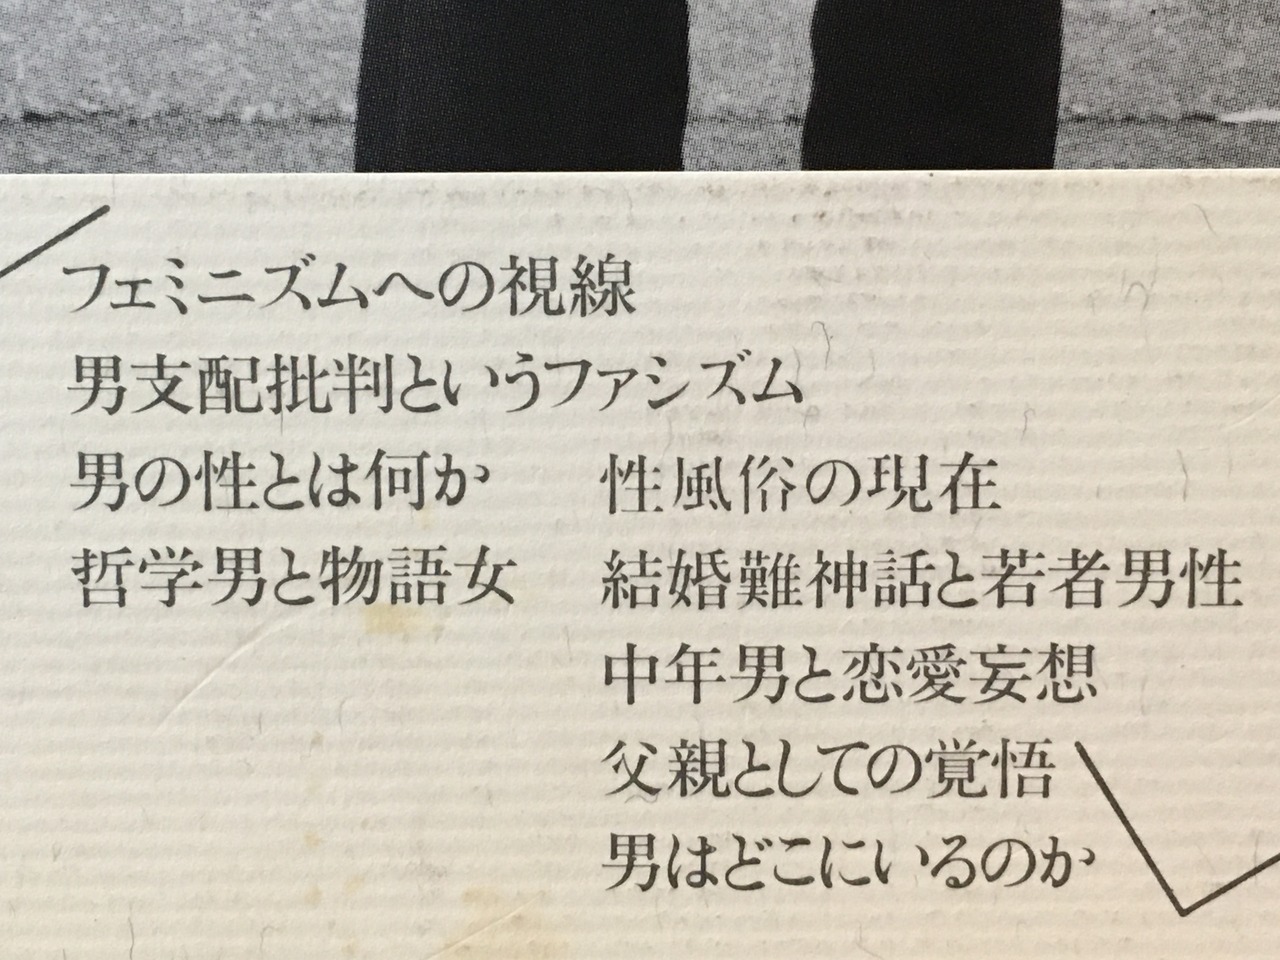 フェミニズムへの視線
男支配批判というファシズム
男の性とは何か　性風俗の現在
哲学男と物語女　結婚難神話と若者男性
中年男と恋愛妄想
父親としての覚悟
男はどこにいるのか